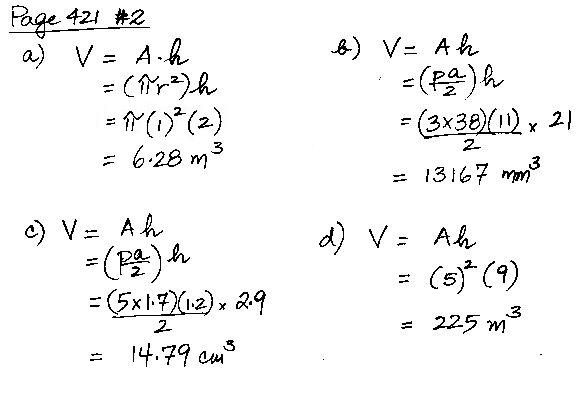 Page 421 #2
a) V = A·h
= (πr²)h
= π(1)²(2)
= 6.28 m³
b) V = Ah
= (pa/2)h
= (3×38)(11)/2 × 21
= 13167 mm³
c) V = Ah
= (pa/2)h
= (5×1.7)(1.2)/2 × 2.9
= 14.79 cm³
d) V = Ah
= (5)²(9)
= 225 m³